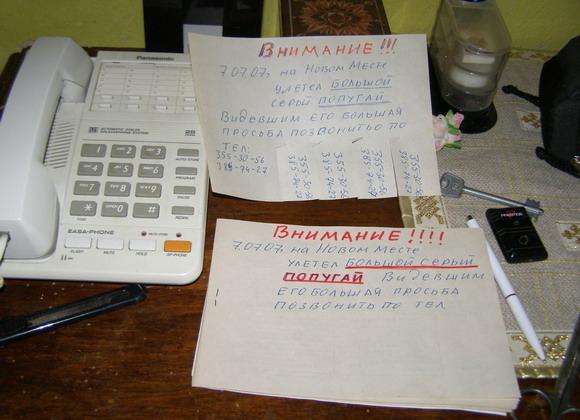 Panasonic
AUTOMATIC DIALER
SPEAKERPHONE SYSTEM
1 ABC 2 DEF 3
GHI 4 JKL 5 MNO 6
PRS 7 TUV 8 WXY 9
* OPER 0 #
TONE
AUTO STORE
PROGRAM
PAUSE
REDIAL
EASA-PHONE
FLASH MUTE HOLD SP-PHONE
ВНИМАНИЕ!!!
7.07.07г на НОВОМ МЕСТЕ
УЛЕТЕЛ БОЛЬШОЙ
СЕРЫЙ ПОПУГАЙ
ВИДЕВШИМ ЕГО БОЛЬШАЯ
ПРОСЬБА ПОЗВОНИТЬ ПО
ТЕЛ:
355-30-56
385-74-27
355-30-56
385-74-27
355-30-56
385-74-27
355-30-56
385-74-27
ВНИМАНИЕ!!!!
7.07.07г. на НОВОМ МЕСТЕ
УЛЕТЕЛ БОЛЬШОЙ СЕРЫЙ
ПОПУГАЙ ВИДЕВШИМ
ЕГО БОЛЬШАЯ ПРОСЬБА
ПОЗВОНИТЬ ПО ТЕЛ